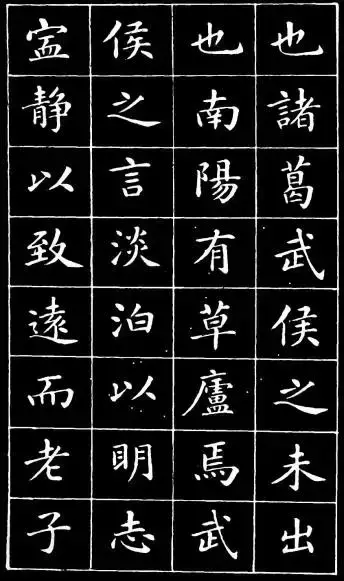 也諸葛武侯之未出
也南陽有草廬焉武
侯之言淡泊以明志
寍静以致遠而老子